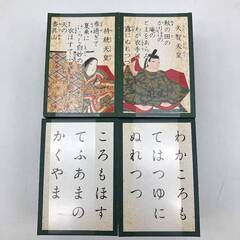 天智天皇
秋の田の
かりほの
庵の
とまをあらみ
わが衣手は
露にぬれつゝ
持統天皇
春過ぎて
夏来に
けらし白妙の
衣ほすてふ
わかころも
てはつゆに
ぬれつつ
ころもほす
てふあまの
かくやま